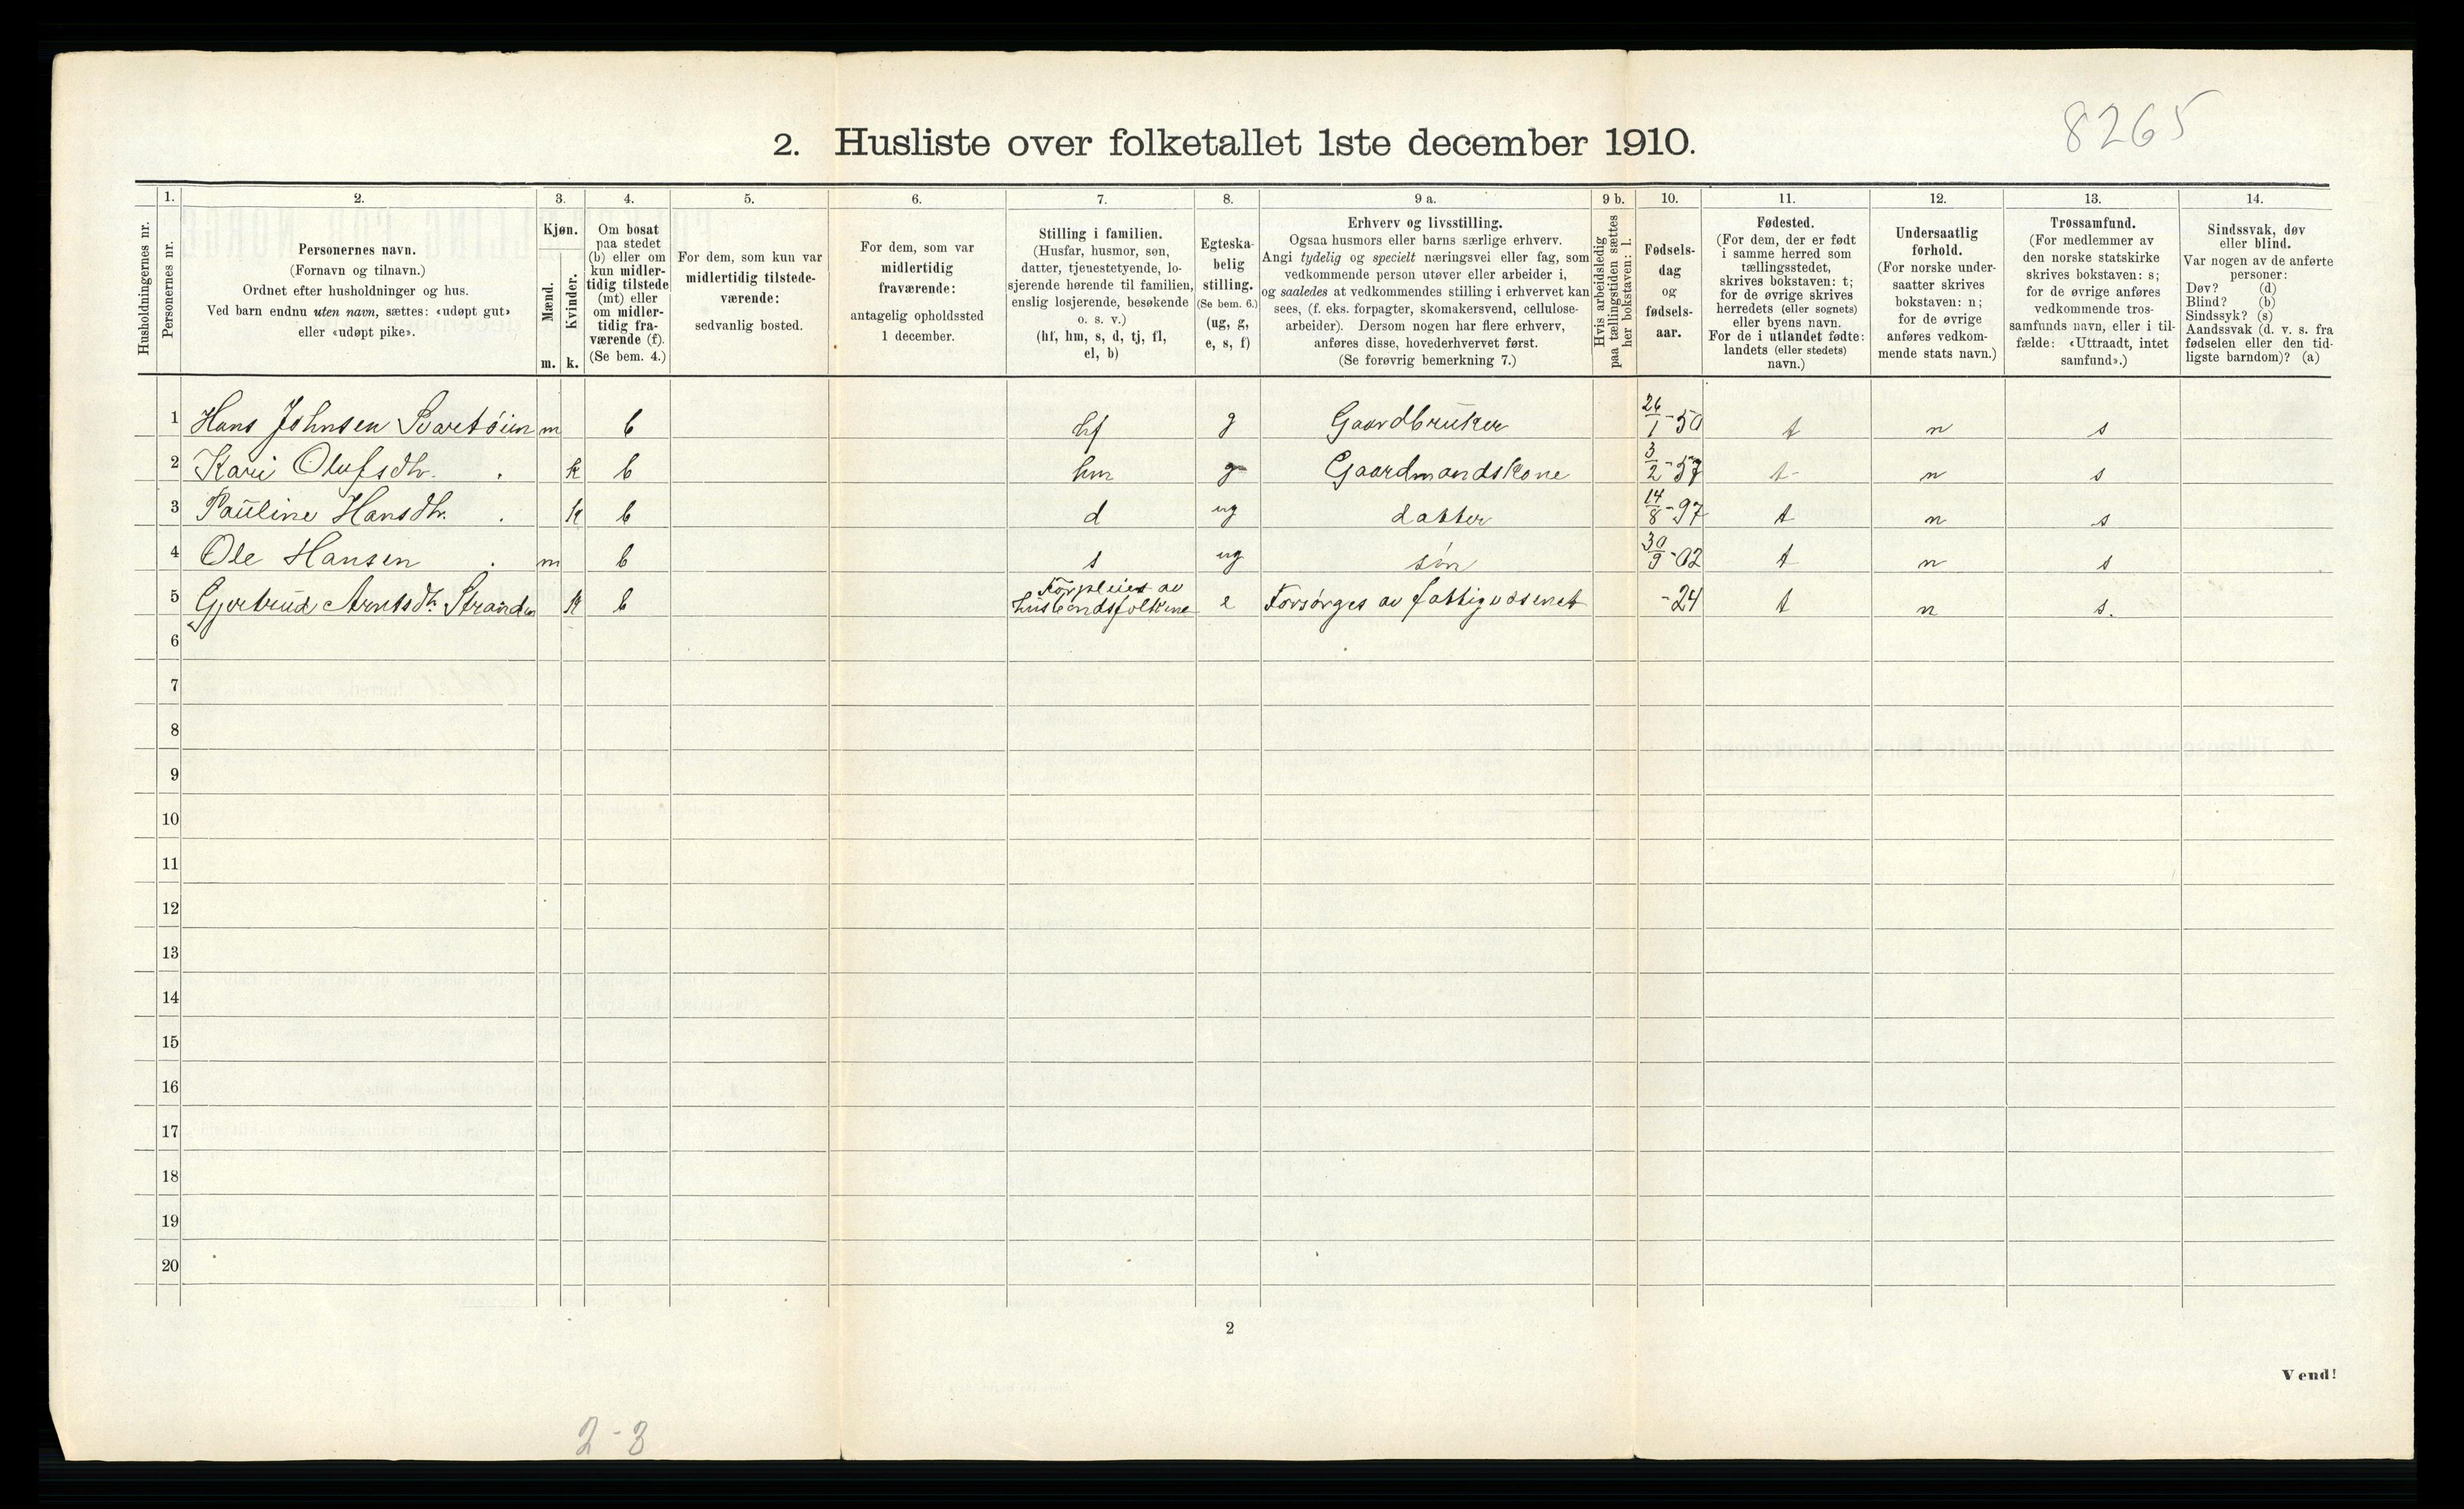 8265
2. Husliste over folketallet 1ste december 1910.
Husholdningernes nr.
1.
Personernes nr.
2.
Personernes navn.
(Fornavn og tilnavn.)
Ordnet efter husholdninger og hus.
Ved barn endnu uten navn, sættes: «udøpt gut»
eller «udøpt pike».
3.
Kjøn.
Mænd.
m.
Kvinder.
k.
4.
Om bosat
paa stedet
(b) eller om
kun midler-
tidig tilstede
(mt) eller
om midler-
tidig fra-
værende (f).
(Se bem. 4.)
5.
For dem, som kun var
midlertidig tilstede-
værende:
sedvanlig bosted.
6.
For dem, som var
midlertidig
fraværende:
antagelig opholdssted
1 december.
7.
Stilling i familien.
(Husfar, husmor, søn,
datter, tjenestetyende, lo-
sjerende hørende til familien,
enslig losjerende, besøkende
o. s. v.)
(hf, hm, s, d, tj, fl,
el, b)
8.
Egteska-
belig
stilling.
(Se bem. 6.)
(ug, g,
e, s, f)
9 a.
Erhverv og livsstilling.
Ogsaa husmors eller barns særlige erhverv.
Angi tydelig og specielt næringsvei eller fag, som
vedkommende person utøver eller arbeider i,
og saaledes at vedkommendes stilling i erhvervet kan
sees, (f. eks. forpagter, skomakersvend, cellulose-
arbeider). Dersom nogen har flere erhverv,
anføres disse, hovederhvervet først.
(Se forøvrig bemerkning 7.)
9 b.
Hvis arbeidsledig
paa tællingstiden sættes
her bokstaven: l.
10.
Fødsels-
dag
og
fødsels-
aar.
11.
Fødested.
(For dem, der er født
i samme herred som
tællingsstedet,
skrives bokstaven: t;
for de øvrige skrives
herredets (eller sognets)
eller byens navn.
For de i utlandet fødte:
landets (eller stedets)
navn.)
12.
Undersaatlig
forhold.
(For norske under-
saatter skrives
bokstaven: n;
for de øvrige
anføres vedkom-
mende stats navn.)
13.
Trossamfund.
(For medlemmer av
den norske statskirke
skrives bokstaven: s;
for de øvrige anføres
vedkommende tros-
samfunds navn, eller i til-
fælde: «Uttraadt, intet
samfund».)
14.
Sindssvak, døv
eller blind.
Var nogen av de anførte
personer:
Døv? (d)
Blind? (b)
Sindssyk? (s)
Aandssvak (d. v. s. fra
fødselen eller den tid-
ligste barndom)? (a)
1 Hans Johnsen Svartøien m b hf g Gaardbruker 26/1-50 t n s
2 Kari Olufsdtr. k b hm g Gaardmandskone 3/2-57 t n s
3 Pauline Hansdtr. k b d ug datter 14/8-97 t n s
4 Ole Hansen m b s ug søn 30/9-02 t n s
5 Gjertrud Arntsdtr. Stranden k b Forpleies av
husbondsfolkene e Forsørges av fattigvæsenet -24 t n s.
6
7
8
9
10
11
12
13
14
15
16
17
18
19
20
2
Vend!
2-3